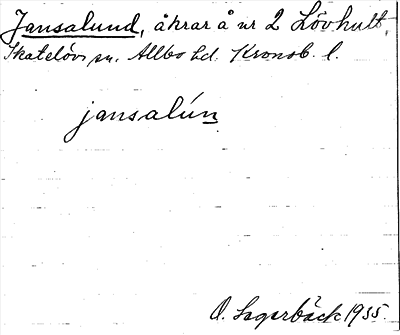 Jansalund, åkrar å nr 2 Lövhult,
Skatelövs sn. Allbo hd. Kronob. l.
jansalún
O. Sagerbäck 1935.